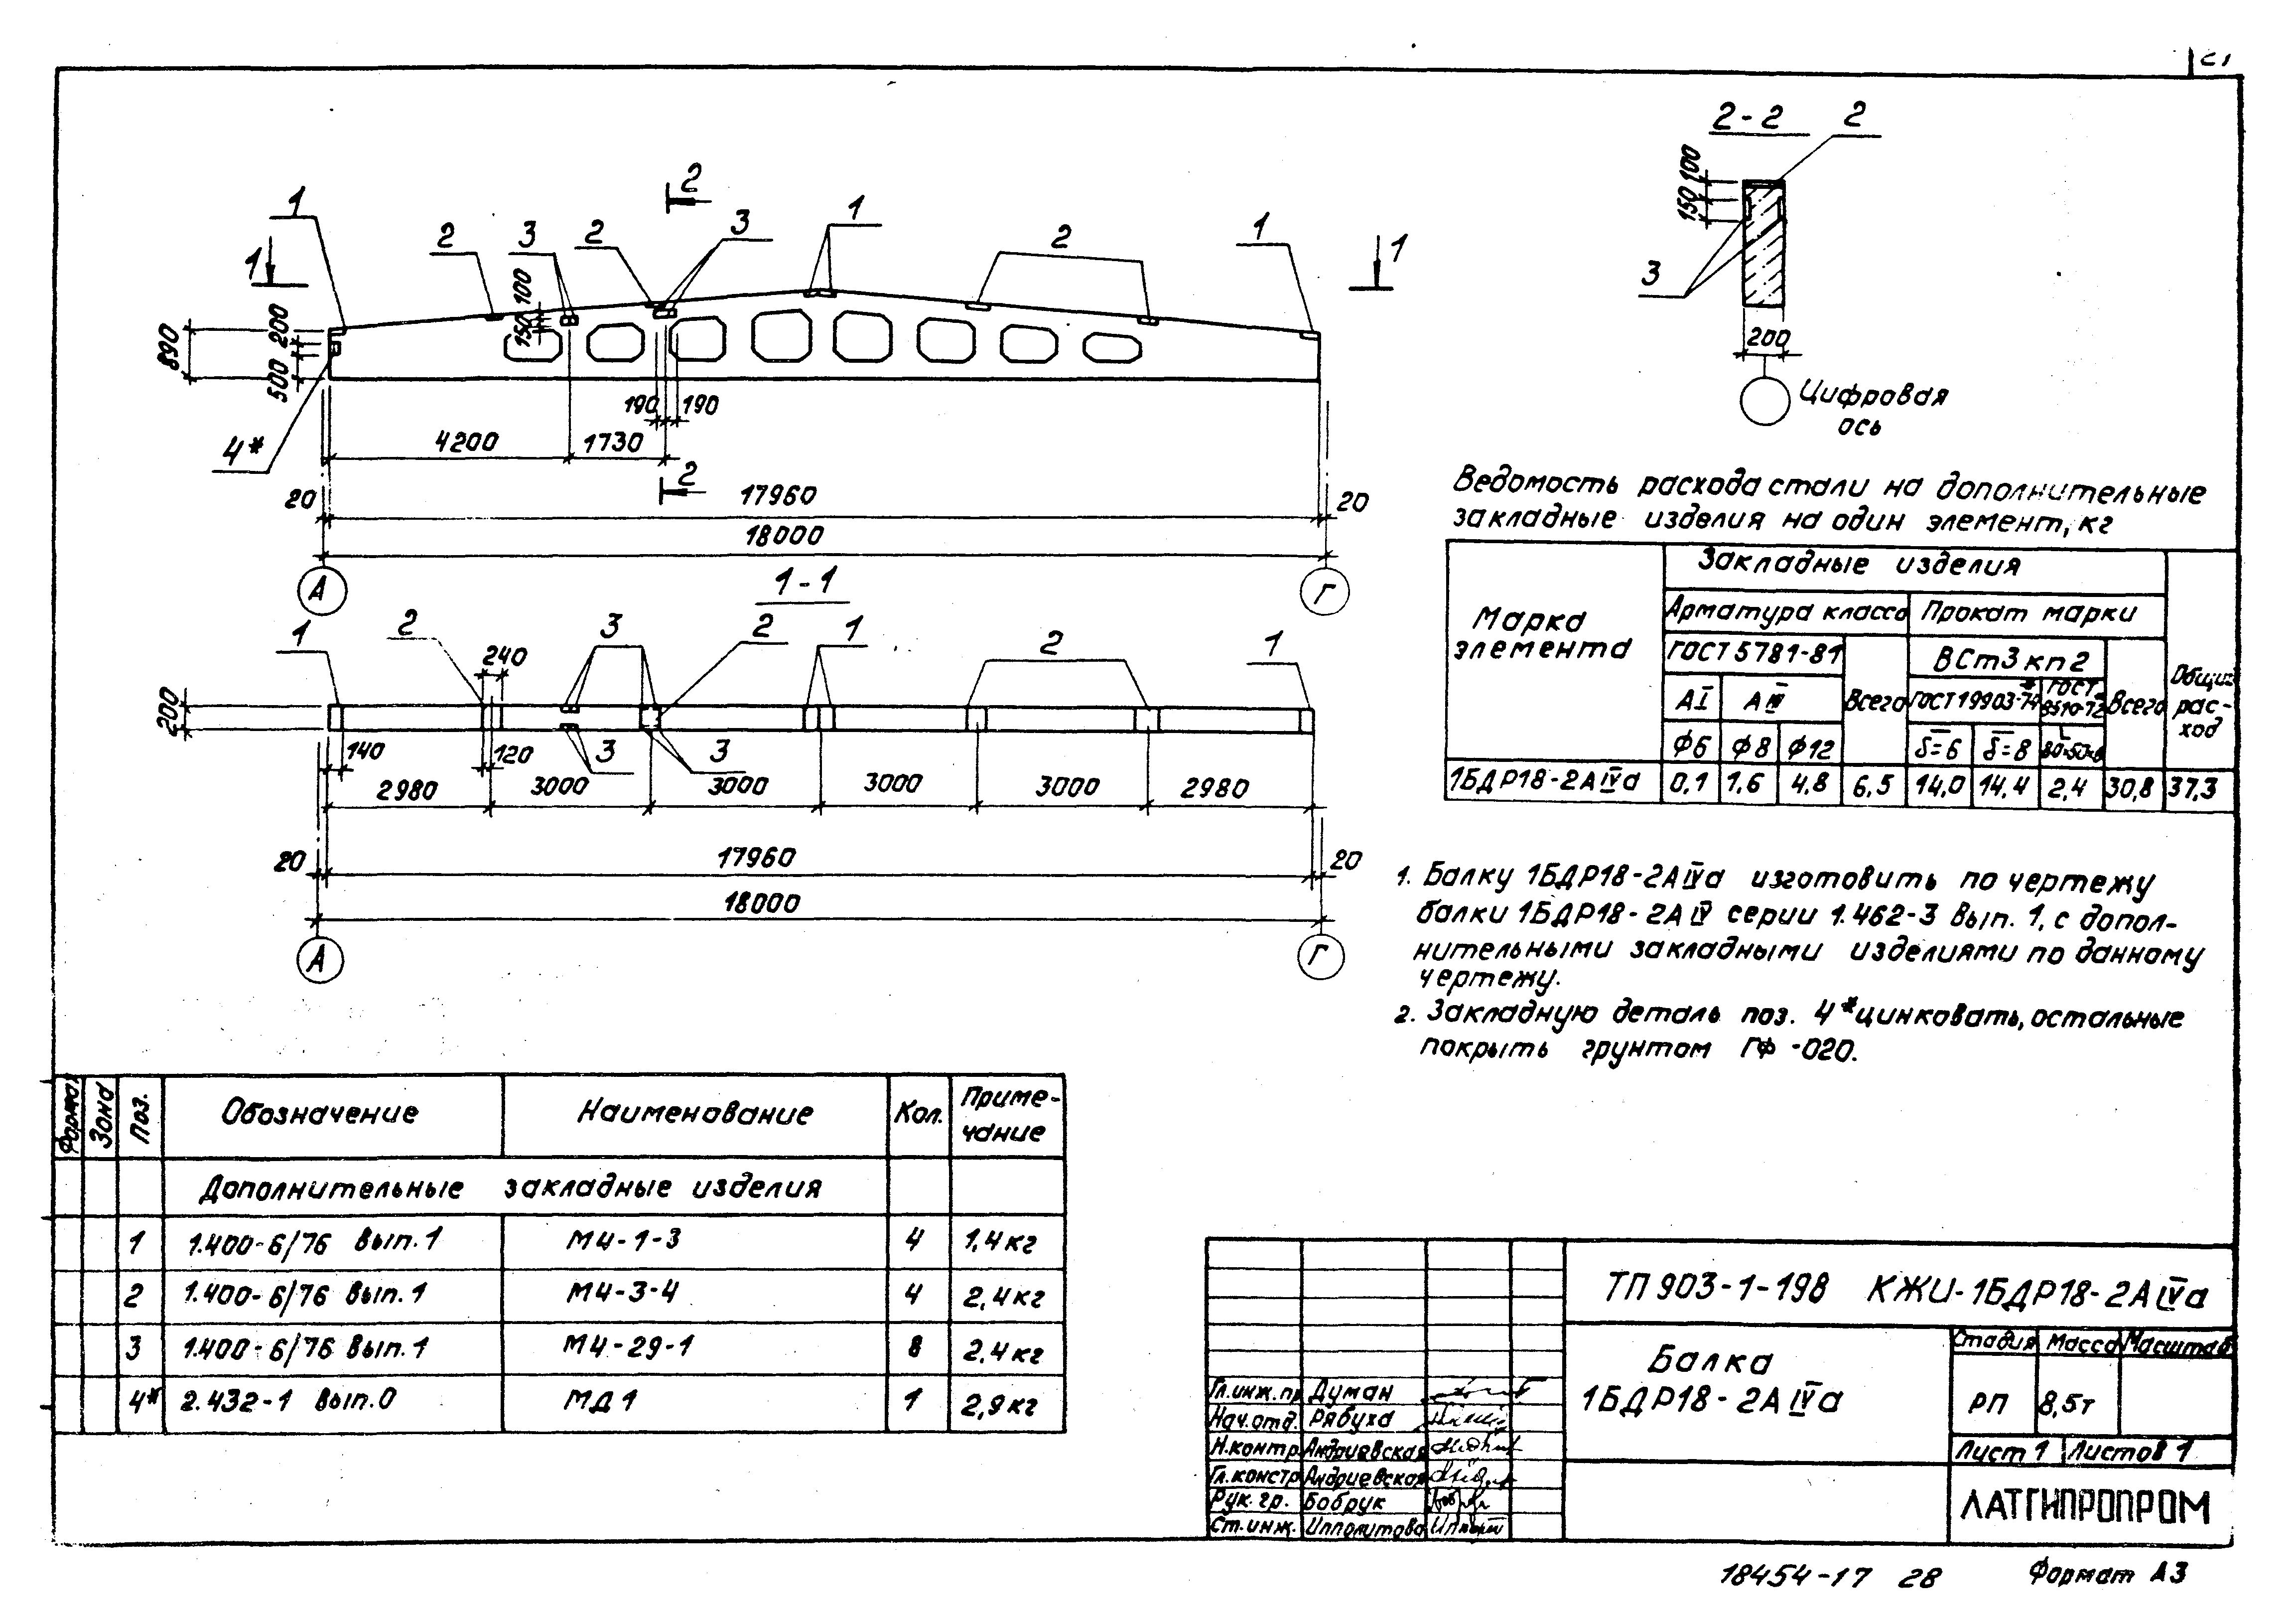 2-2
2
100
150
3
200
Цифровая
ось
2
1
2
3
2
3
1
2
1
1
1
890
200
500
100
150
190
190
4*
4200
1730
2
20
17960
20
18000
А
Г
1-1
1
2
3
2
1
2
1
240
200
140
120
3
3
2980
3000
3000
3000
3000
2980
20
17960
20
18000
А
Г
Ведомость расхода стали на дополнительные
закладные изделия на один элемент, кг
Марка элемента
Закладные изделия
Общий рас-ход
Арматура класса
Прокат марки
ГОСТ 5781-81
Всего
ВСт3кп2
Всего
АI
АIII
ГОСТ 19903-74*
ГОСТ 8510-72
Ф6
Ф8
Ф12
δ=6
δ=8
1БДР18-2АIVа
0,1
1,6
4,8
6,5
14,0
14,4
2,4
30,8
37,3
1. Балку 1БДР18-2АIVа изготовить по чертежу
балки 1БДР18-2АIV серии 1.462-3 вып. 1, с допол-
нительными закладными изделиями по данному
чертежу.
2. Закладную деталь поз. 4* цинковать, остальные
покрыть грунтом ГФ-020.
Формат
Зона
Поз.
Обозначение
Наименование
Кол.
Приме-чание
Дополнительные закладные изделия
1
1.400-6/76 вып.1
М4-1-3
4
1,4кг
2
1.400-6/76 вып.1
М4-3-4
4
2,4кг
3
1.400-6/76 вып.1
М4-29-1
8
2,4кг
4*
2.432-1 вып.0
МД1
1
2,9кг
ТП 903-1-198 КЖИ-1БДР18-2АIVа
Балка
1БДР18-2АIVа
Стадия
Масса
Масштаб
РП
8,5т
Лист 1
Листов 1
Гл.инж.пр Думан
Нач.отд. Рябуха
Н.контр Андриевская
Гл.констр Андриевская
Рук.гр. Бобрук
Ст.инж. Ипполитова
ЛАТГИПРОПРОМ
18454-17 28
Формат А3